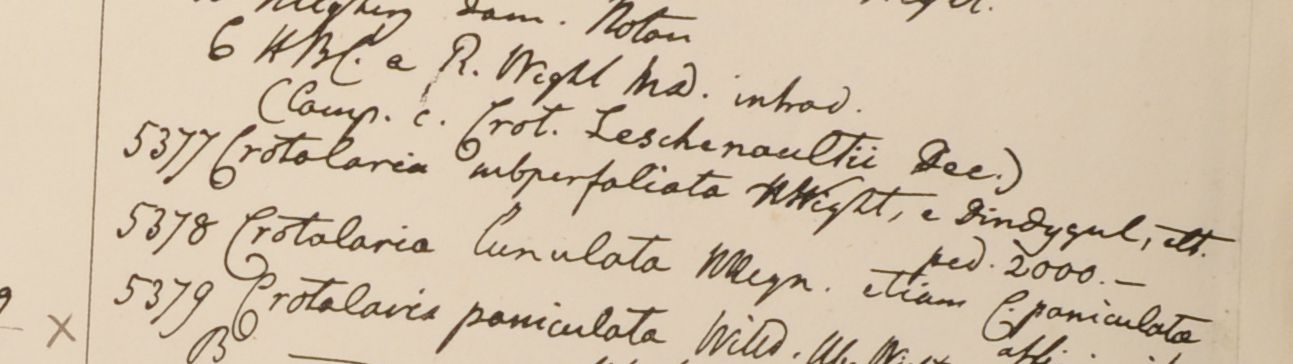 Dom. Noton
6 HBC. e R. Wight Mad. introd.
(Comp. c. Crot. Leschenaultii Dec.)
5377 Crotalaria subperfoliata Wight, e Dindygul, alt. ped. 2000.—
5378 Crotalaria lunulata Heyn. etiam C. paniculata
5379 Crotalaria paniculata Willd.
B
X